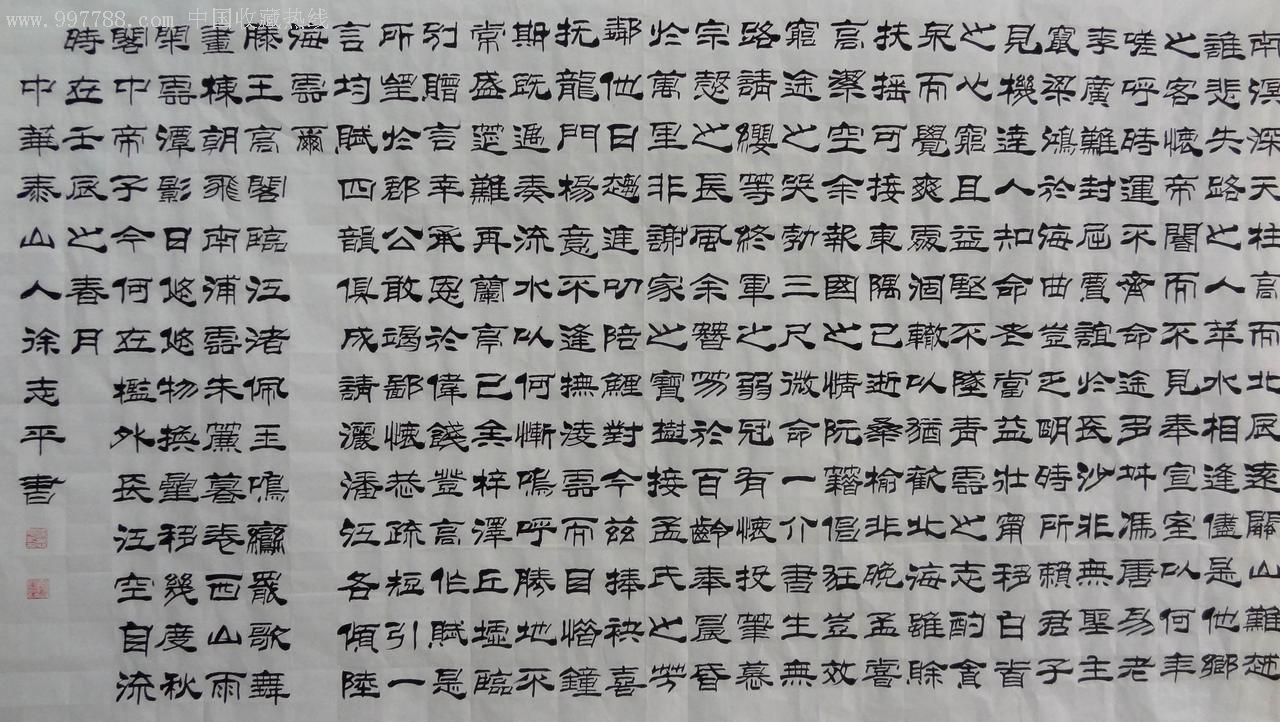 www.997788.com 中国收藏热线
南溟深天柱高而北辰遠關山難越
誰悲失路之人苹水相逢儘是他鄉
之客懷帝閽而不見奉宣室以何年
嗟呼時運不齊命途多舛馮唐易老
李廣難封屈賈誼於長沙非無聖主
竄梁鴻於海曲豈乏明時所賴君子
見機達人知命老當益壯甯移白首
之心窮且益堅不墜青雲之志酌貪
泉而覺爽處涸轍以猶歡北海雖賒
扶搖可接東隅已逝桑榆非晚孟嘗
高潔空余報國之情阮籍倡狂豈效
窮途之哭勃三尺微命一介書生無
路請纓等終軍之弱冠有懷投筆慕
宗愨之長風余簪笏於百齡奉晨昏
於萬里非謝家之寶樹接孟氏之芳
鄰他日趨進叨陪鯉對今茲捧袂喜
抚龍門楊意不逢撫淩雲而自惜鐘
期既遇奏流水以何慚嗚呼勝地不
常盛筵難再蘭亭已矣梓澤丘墟臨
別贈言幸承恩於偉餞登高作賦是
所望於郡公敢竭鄙懷恭疏短引一
言均賦四韻俱成請灑潘江各傾陸
海雲爾
滕王高閣臨江渚佩玉鳴鸞罷歌舞
畫棟朝飛南浦雲朱簾暮卷西山雨
閑雲潭影日悠悠物換星移幾度秋
閣中帝子今何在檻外長江空自流
時在壬辰之春月
中華泰山人徐志平書